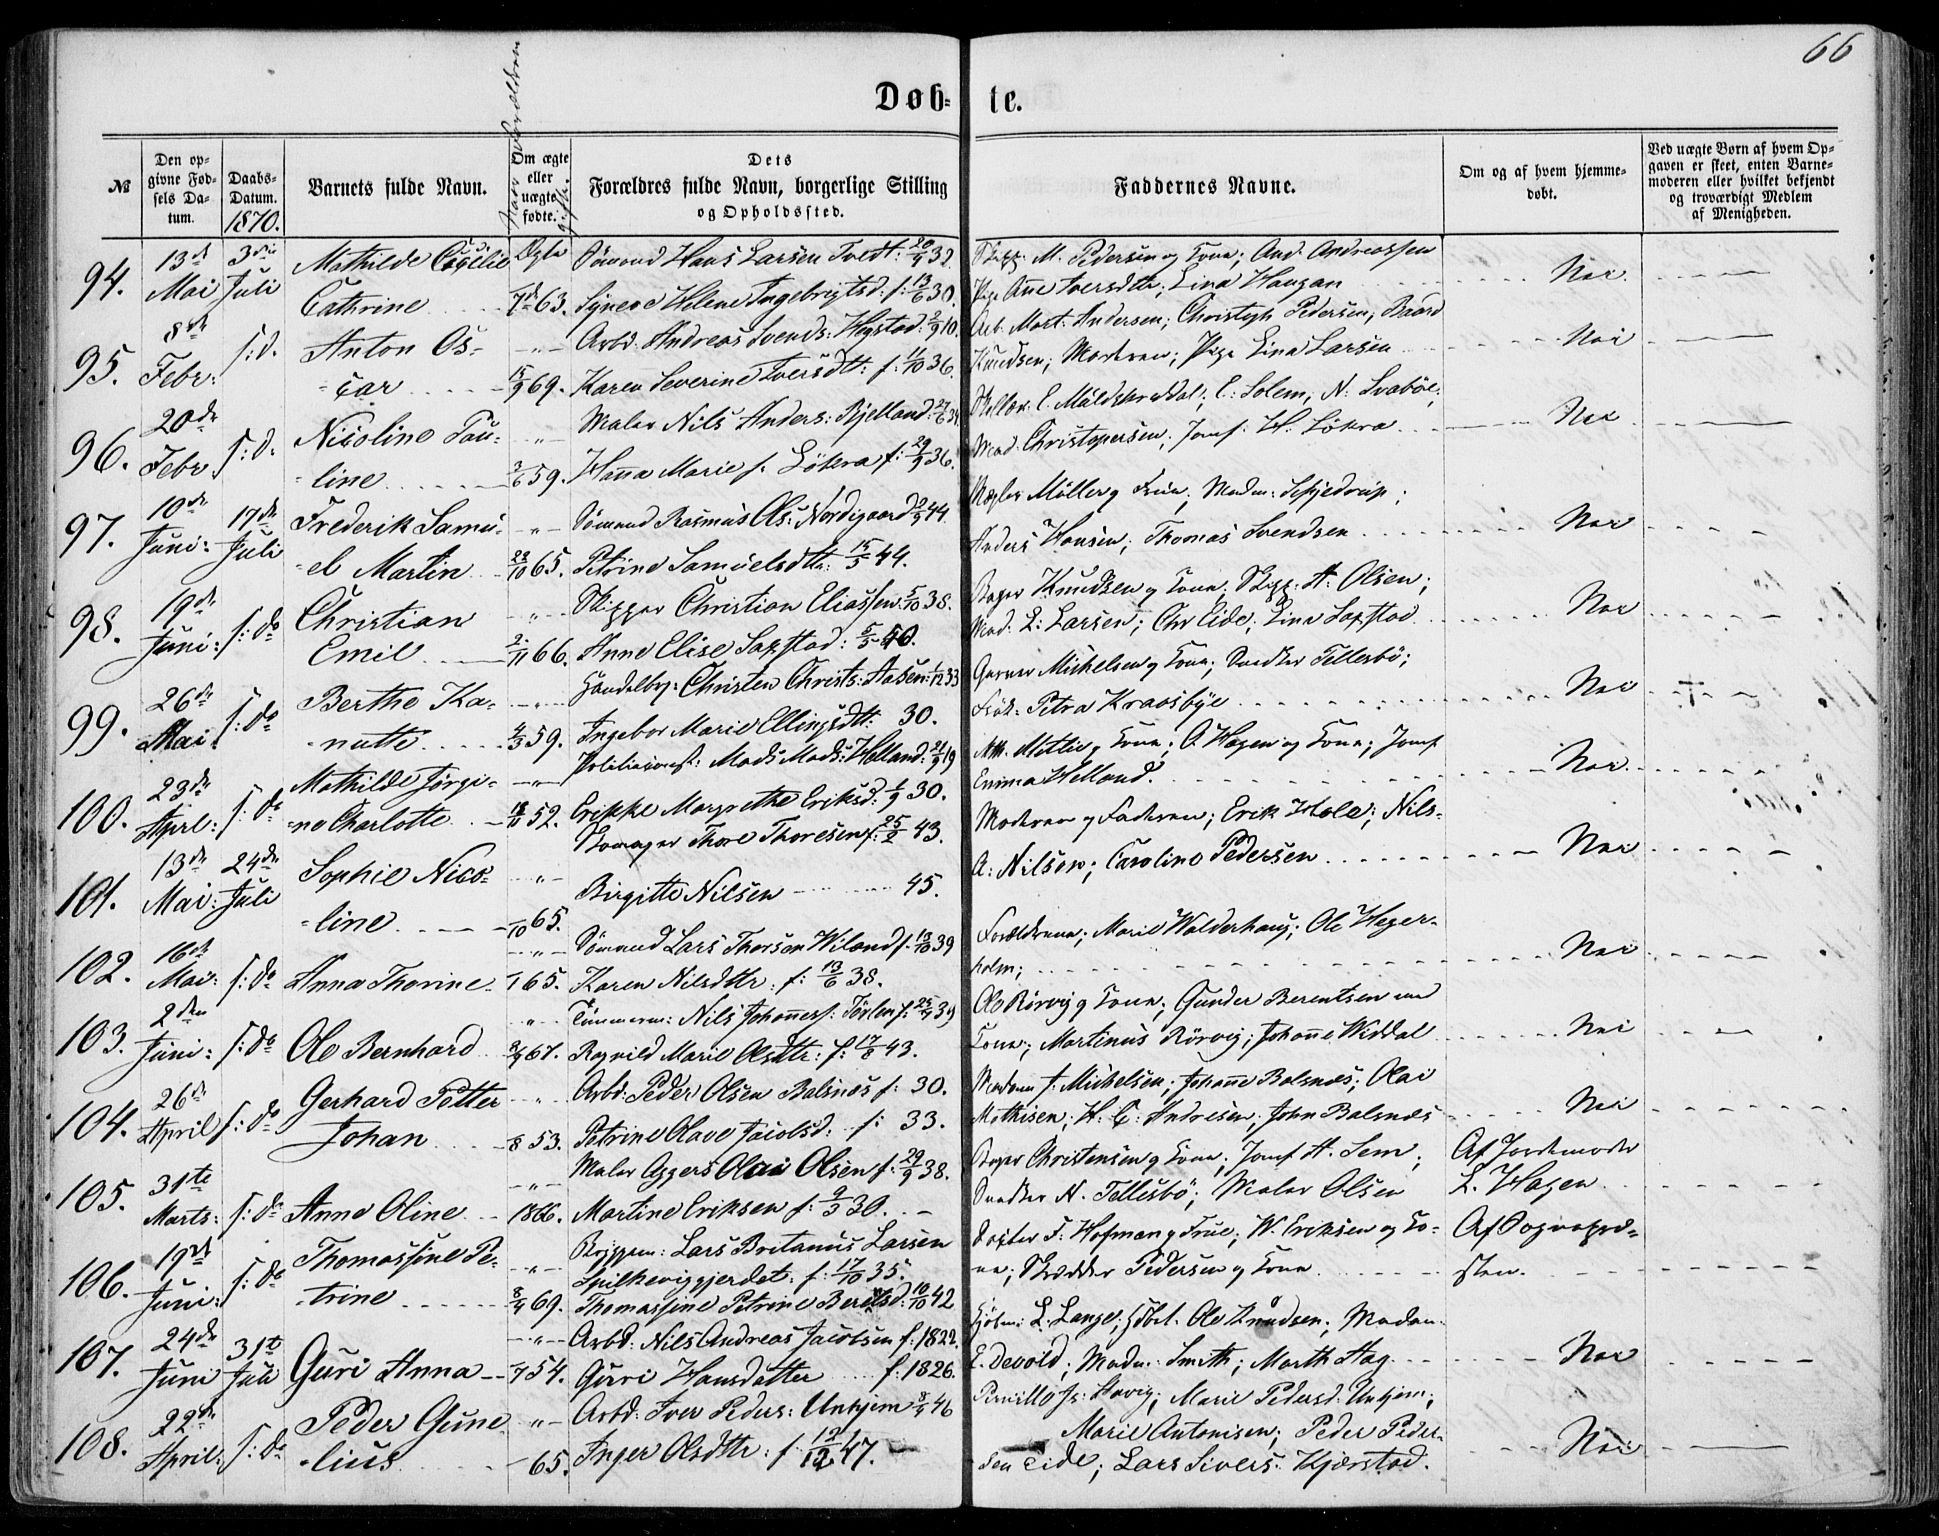 66
Døb-te.
№
Den opgivne Fødsels Datum.
Daabs-Datum.
1870.
Barnets fulde Navn.
Om ægte eller uægte fødte.
Dets Forældres fulde Navn, borgerlige Stilling og Opholdssted.
Faddernes Navne.
Om og af hvem hjemmedøbt.
Ved uægte Børn af hvem Opgaven er skeet, enten Barnemoderen eller hvilket bekjendt og troværdigt Medlem af Menigheden.
94. 13de Mai 3die Juli Mathilde Cecilie Cathrine Ægte 63.
Sømand Hans Larsen Tvedt: 32.
Synere Helene Ingebrigtsd: f: 13/6 30.
Skipp: M. Pedersen og Kone; And. Andreassen
Pige Ane Iversdtr; Lina Haugan
Nei
95. 8de Febr: s:d. Anton Oscar 15/9 69.
Arbd: Andreas Svends: Hogstad: 2/9 10.
Karen Severine Iversdtr: f: 11/10 36.
Arb. Mort: Andersen; Christoph Pedersen, Baard
Knudsen; Moderen; Pige Lina Larsen
Nei
96. 20de Febr s:d. Nicoline Pauline 2/6 59.
Maler Nils Anders: Bjelland: 27/6
Hanna Marie f. Løkra f: 29/9 36.
E. Solem; N. Svabøe;
Mad: Christopersen; Jomf: H. Løkra
Nei
97. 10de Juni: 17de Juli Frederik Samuel Martin 23/10 65.
Sømand Rasmus Ols: Nordigaard 2/9 44
Petrine Samuelsdtr: 15/5 44.
Mægler Møller og Frue, Madm: Schjedrup;
Anders Hansen; Thomas Svendsen
Nei
98. 19de Juni: s: do Christian Emil 2/11 66.
Skipper Christian Eliassen: 5/10 38.
Anne Elise Saxstad: 5/5 40.
Bager Knudsen og Kone; Skipp: A. Olsen;
Mad: L: Larsen; Chr Eide; Lina Saxstad
Nei
99. 26de Mai: s: do Berthe Kanutte 4/3 59.
Handelbg: Christen Christs: Aasen: 1/12 33
Ingebor Marie Ellingsdtr: 30.
Garver Michelsen og Kone; Snedker Tellesbø;
Frøk: Petra Kraasbye
Nei
100. 23de April: s: do Mathilde Jørgine Charlotte 18/11 52.
Politiconst: Mads Mads: Helland: 21/9 19
Erikke Margrethe Eriksd: 1/9 30.
O Hagen og Kone; Jomf
Emma Helland.
Nei.
101. 13de Mai: 24de Juli Sophie Nicoline /10 65.
Skomager Thore Thoresen f. 25/2 43.
Birgitte Nilsen 45.
Moderen og Faderen; Erik Hole; Nils
A: Nilsen; Caroline Pedersen
Nei
102. 16de Mai: s: do Anna Thorine 65.
Sømand Lars Thorsen Wiland f: 13/10 39
Karen Nilsdtr: f: 13/6 38.
Forældrene; Marie Walderhaug; Ole Hegerholm;
Nei
103. 2den Juni: s: do Ole Bernhard 67.
Tømmerm: Nils Johannes: Tørlen f: 25/4 39
Ragnild Marie Olsdtr: f: 17/8 43.
Ole Rørvig og Kone; Gunder Berentsen med
Kone; Martinus Rørvig; Johanne Widdal
Nei
104. 26de April s: do Gerhard Petter Johan 8 53.
Arbd: Peder Olsen Balsnæs f: 30.
Petrine Olave Jacobsd: f: 33.
Madam f: Michelsen; Johanne Balsnæs; Olai
Mathisen; H. C: Andresen; John Balsnæs
Nei
105. 31te Marts: s: do Anne Oline 1866.
Maler Aggers Olai Olsen f: 29/9 38.
Martine Eriksen f: 9/3 30.
Bager Christensen og Kone; Jomf A. Sem;
Snedker N. Tellesbø; Maler Olsen
Af Jordemoder
L. Hagen
106. 19de Juni: s: do Thomassine Petrine 8/4 69.
Bryggem: Lars Britanus Larsen
Spilkeviggjerdet: f: 17/10 35.
Thomassine Petrine Berntsd: 10/10 42
Doktor F: Hofman og Frue; W. Eriksen og Kone; Skrædder Pedersen og Kone
Af Sogneprесten.
107. 24de Juni 31te Juli Guri Anna 54.
Arbd: Nils Andreas Jacobsen f: 1822.
Gurri Hansdatter f: 1826.
L. Lange; Ole Knudsen; Madam
E. Devold; Madm: Smith; Marth Hag
Nei
108. 22de April: s: do Peder Gunelius 65.
Arbd: Iver Peders: Unhjem 8/4 46
Inger Olsdtr: f 12/12 47.
Pernille Js: Havig; Marie Pedersd: Unhjem;
Marie Antonisen; Peder Pedersen Eide; Lars Sivers: Kjærstad.
Nei